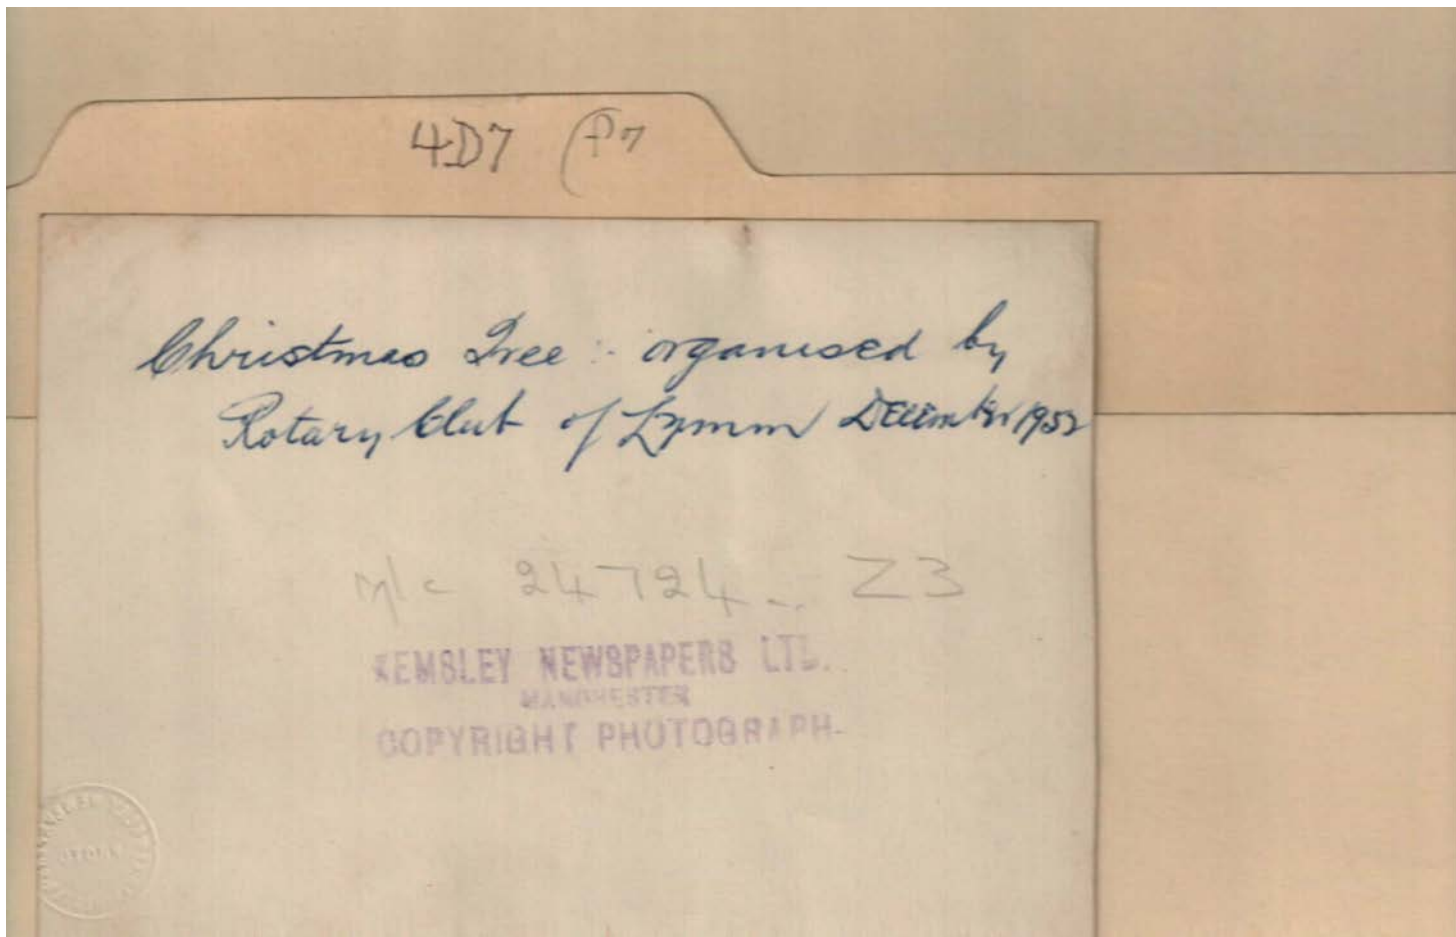 4D7 (P7
Christmas Tree :- organised by
Rotary Club of Lymm December 1952
M/c 24724 -. Z3
KEMSLEY NEWSPAPERS LTD.
MANCHESTER
COPYRIGHT PHOTOGRAPH-